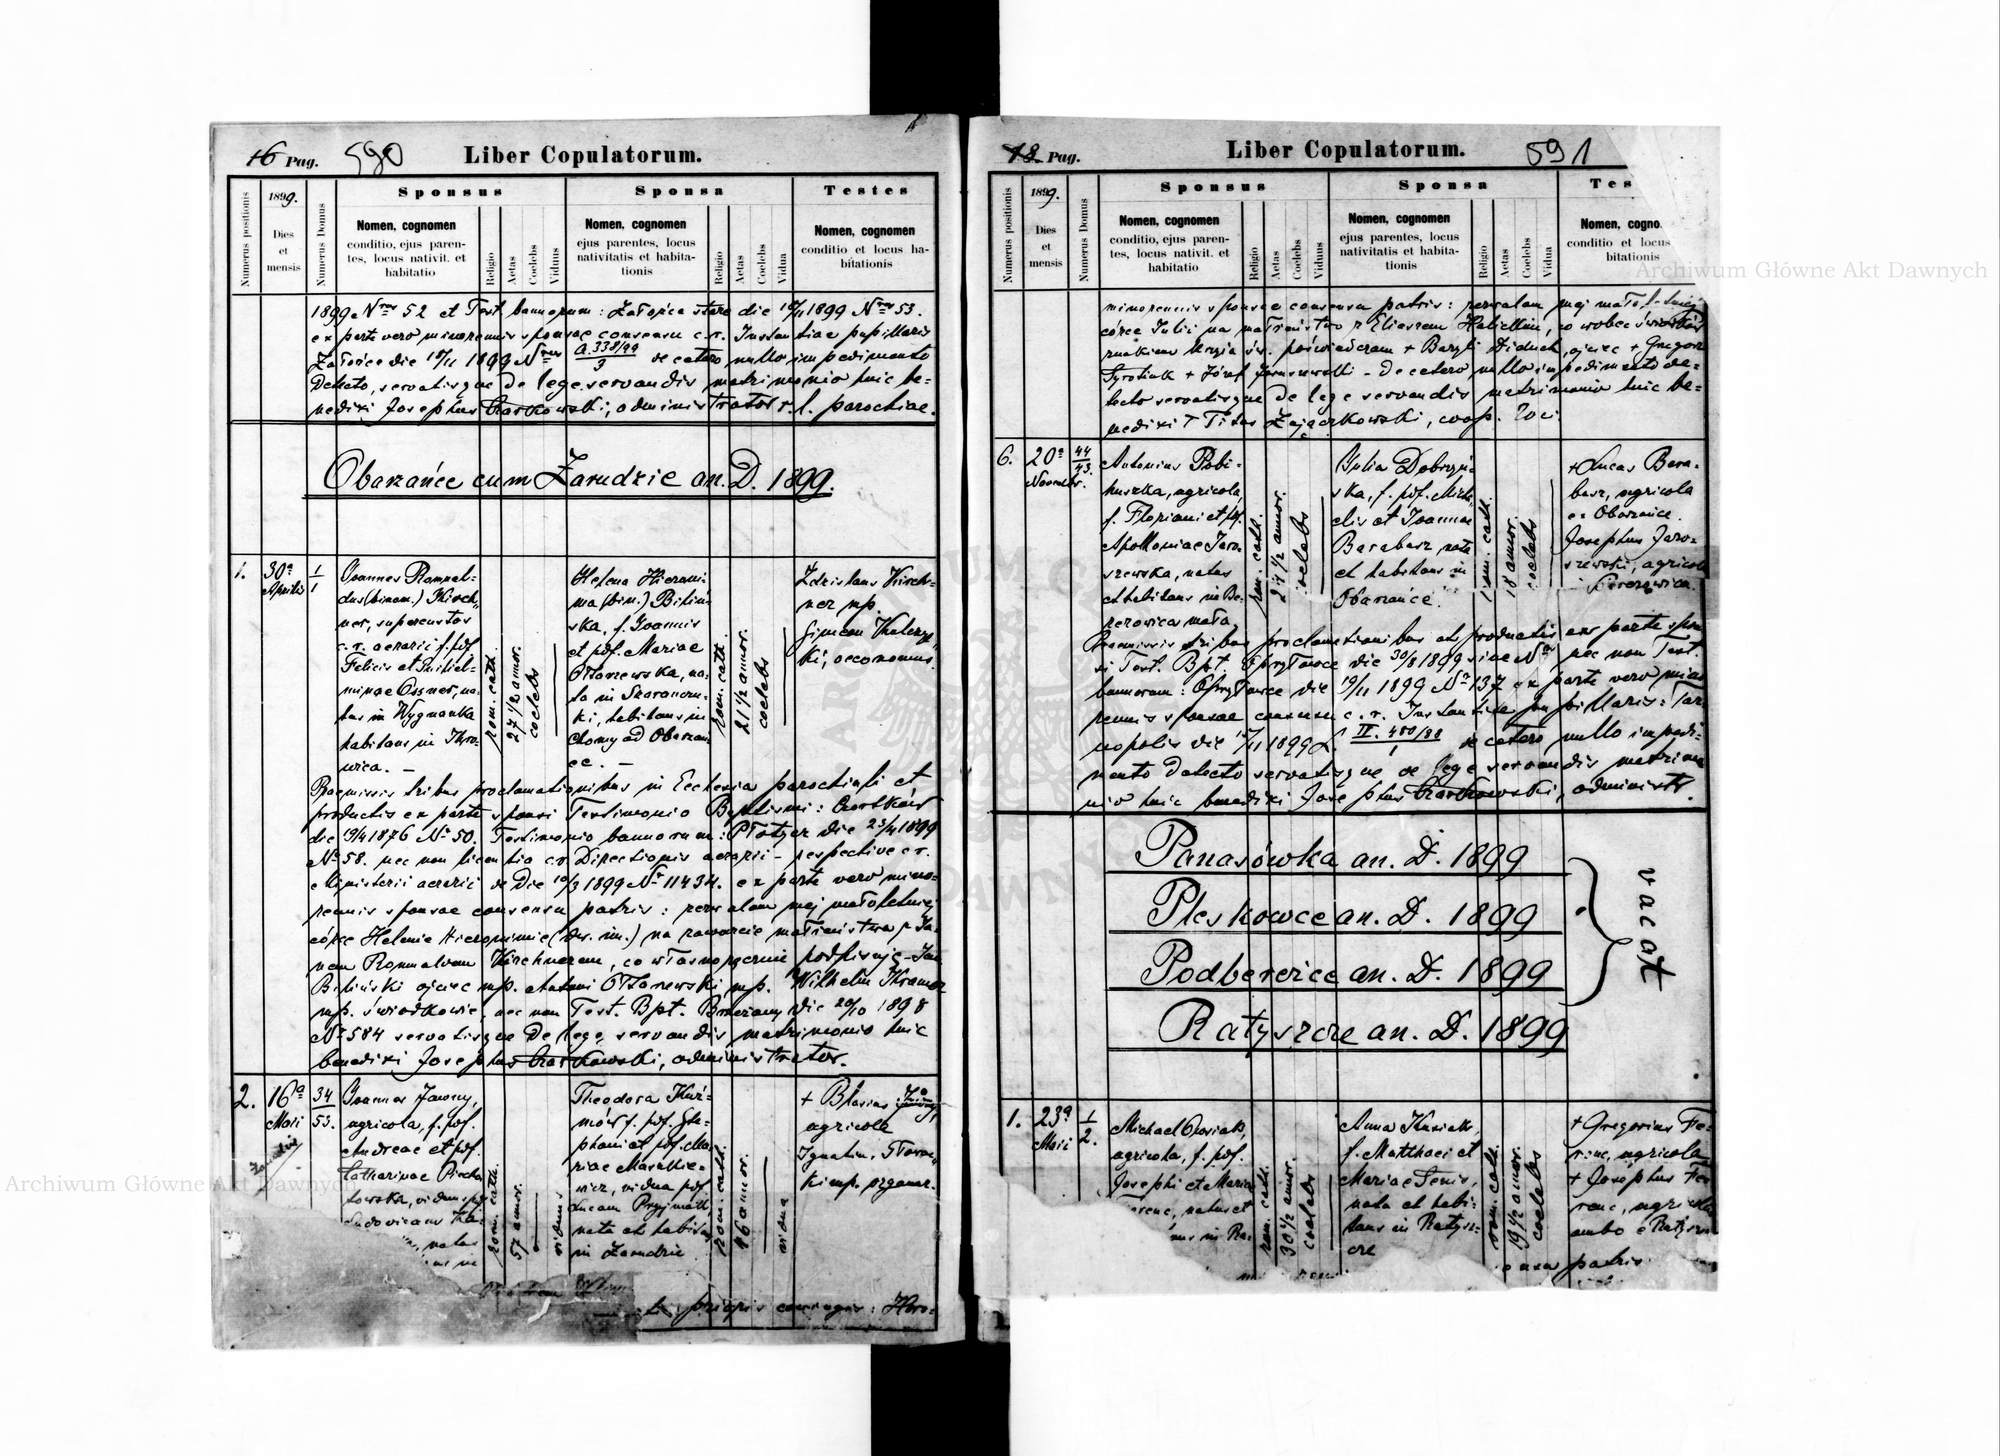 16 Pag. 590 Liber Copulatorum.
Numerus positionis
1899.
Dies
et
mensis
Numerus Domus
Sponsus
Nomen, cognomen
conditio, ejus paren-
tes, locus nativit. et
habitatio
Religio
Aetas
Coelebs
Viduus
Sponsa
Nomen, cognomen
ejus parentes, locus
nativitatis et habita-
tionis
Religio
Aetas
Coelebs
Vidua
Testes
Nomen, cognomen
conditio et locus ha-
bitationis
1899 Nro 52 et Test. bannorum: Załoźce stare die 1899 Nro 53.
ex parte vero minorennis sponsae consensu c. r. Instantiae pupillaris
Załoźce die 1899 Nro G. 338/99 / 3 de cetero nullo impedimento
detecto, servatisque de lege servandis matrimonio huic be-
nedixi Josephus Czarkowski, administrator r. l. parochiae.
Obarzańce cum Zarudzie an. D. 1899.
1.
30a
Aprilis
1/1
Joannes Romual-
dus (binom.) Kirch-
ner, supercustos
c. r. aerarii f. pdf.
Felicis et Wilhel-
minae Ossner, na-
tus in Wygnanka
habitans in Ihro-
wica. —
rom. cath.
27 1/2 annor.
coelebs
Helena Hieroni-
ma (bin.) Biliń-
ska, f. Joannis
et pdf. Mariae
Ołtarzewska, na-
ta in Skoroncu-
ki, habitans in
Chomy ad Obarzań-
ce. —
rom. cath.
21 1/2 annor.
coelebs
Zdzislaus Kirch-
ner mp.
Simeon
ki, oeconomus.
Praemissis tribus proclamationibus in Ecclesia parochiali et
productis ex parte sponsi Testimonio Baptismi: Czortków
die 19/4 1876 No 50. Testimonio bannorum: Płotycz die 23/4 1899
No 58. nec non licentia c. r. Directionis aerarii — respective c. r.
Ministerii aerarii de die 10/3 1899 No 11434. ex parte vero mino-
rennis sponsae consensu patris: zezwalam mej małoletniej
córce Helenie Hieronimie (dw. im.) na zawarcie małżeństwa z Ja-
nem Romualdem Kirchnerem, co własnoręcznie podpisuję — Jan
Biliński ojciec mp. Antoni Ołtarzewski mp. Wilhelm Kramer
mp. świadkowie, nec non Test. Bpt. Brzeżany die 20/10 1898
No 584 servatisque de lege servandis matrimonio huic
benedixi Josephus Czarkowski, administrator.
2.
16a
Maii
Zarudzie
34/53.
Joannes Jawny,
agricola, f. pdf.
Andreae et pdf.
Catharinae
viduus pf.
Ludovicae
natus
rom. cath.
57 annor.
viduus
Theodora Kuź-
mów f. pdf. Ste-
phani et pdf. Ma-
riae Markie-
wicz, vidua pdf.
Lucam
nata et habitans
in Zarudzie
rom. cath.
46 annor.
vidua
+ Blasius Jawny,
agricola
Ignatius
ki mp. organar.
18 Pag. Liber Copulatorum. 591
Numerus positionis
1899.
Dies
et
mensis
Numerus Domus
Sponsus
Nomen, cognomen
conditio, ejus paren-
tes, locus nativit. et
habitatio
Religio
Aetas
Coelebs
Viduus
Sponsa
Nomen, cognomen
ejus parentes, locus
nativitatis et habita-
tionis
Religio
Aetas
Coelebs
Vidua
Tes
Nomen, cogno
conditio et locus
bitationis
minorennis sponsae consensu patris: zezwalam mej małoletniej
córce Julii na małżeństwo z Eliaszem Habickim, co wobec świadków
znakiem krzyża św. poświadczam + Bazyli Diduch, ojciec + Gregorz
Syrotiuk + Józef Jaruszewski — de cetero nullo impedimento de-
tecto servatisque de lege servandis matrimonio huic be-
nedixi Titus Zajączkowski, coop. loci.
6.
20a
Novembr.
44/43.
Antonius Robi-
huszka, agricola,
f. Floriani et pdf.
Apolloniae Jaro-
szewska, natus
et habitans in Be-
rezowica mała,
rom. cath.
24 1/2 annor.
coelebs
Julia Dobrzyń-
ska, f. pdf. Micha-
elis et Joannae
Barabasz, nata
et habitans in
Obarzańce.
rom. cath.
18 annor.
coelebs
+ Lucas Bara-
basz, agricola
ex Obarzańce.
Josephus Jaro-
szewski, agricola
Berezowica
Praemissis tribus proclamationibus et productis ex parte spon-
si Test. Bpt. Opryłowce die 30/8 1899 sine No nec non Test.
bannorum: Opryłowce die 19/11 1899 No 137 ex parte vero mino-
rennis sponsae consensu c. r. Instantiae pupillaris: Tar-
nopolis die 1899 L. II. 480/98 / 1 de cetero nullo impedi-
mento detecto servatisque de lege servandis matrimo-
nio huic benedixi Josephus Czarkowski, administr.
Panasówka an. D. 1899
Pleskowce an. D. 1899
Podberezice an. D. 1899
vacat
Ratyszcze an. D. 1899
1.
23a
Maii
1/2.
Michael Osniak,
agricola, f. pdf.
Josephi et Mariae
Ferenc, natus et
in Ra-
rom. cath.
30 1/2 annor.
coelebs
Anna Kusiak,
f. Matthaei et
Mariae Fenis,
nata et habi-
tans in Ratysz-
cze
rom. cath.
19 1/2 annor.
coelebs
+ Gregorius Fe-
renc, agricola
+ Josephus Fe-
renc, agricola
ambo e Ratyszcze
patris
Archiwum Główne Akt Dawnych
Archiwum Główne Akt Dawnych